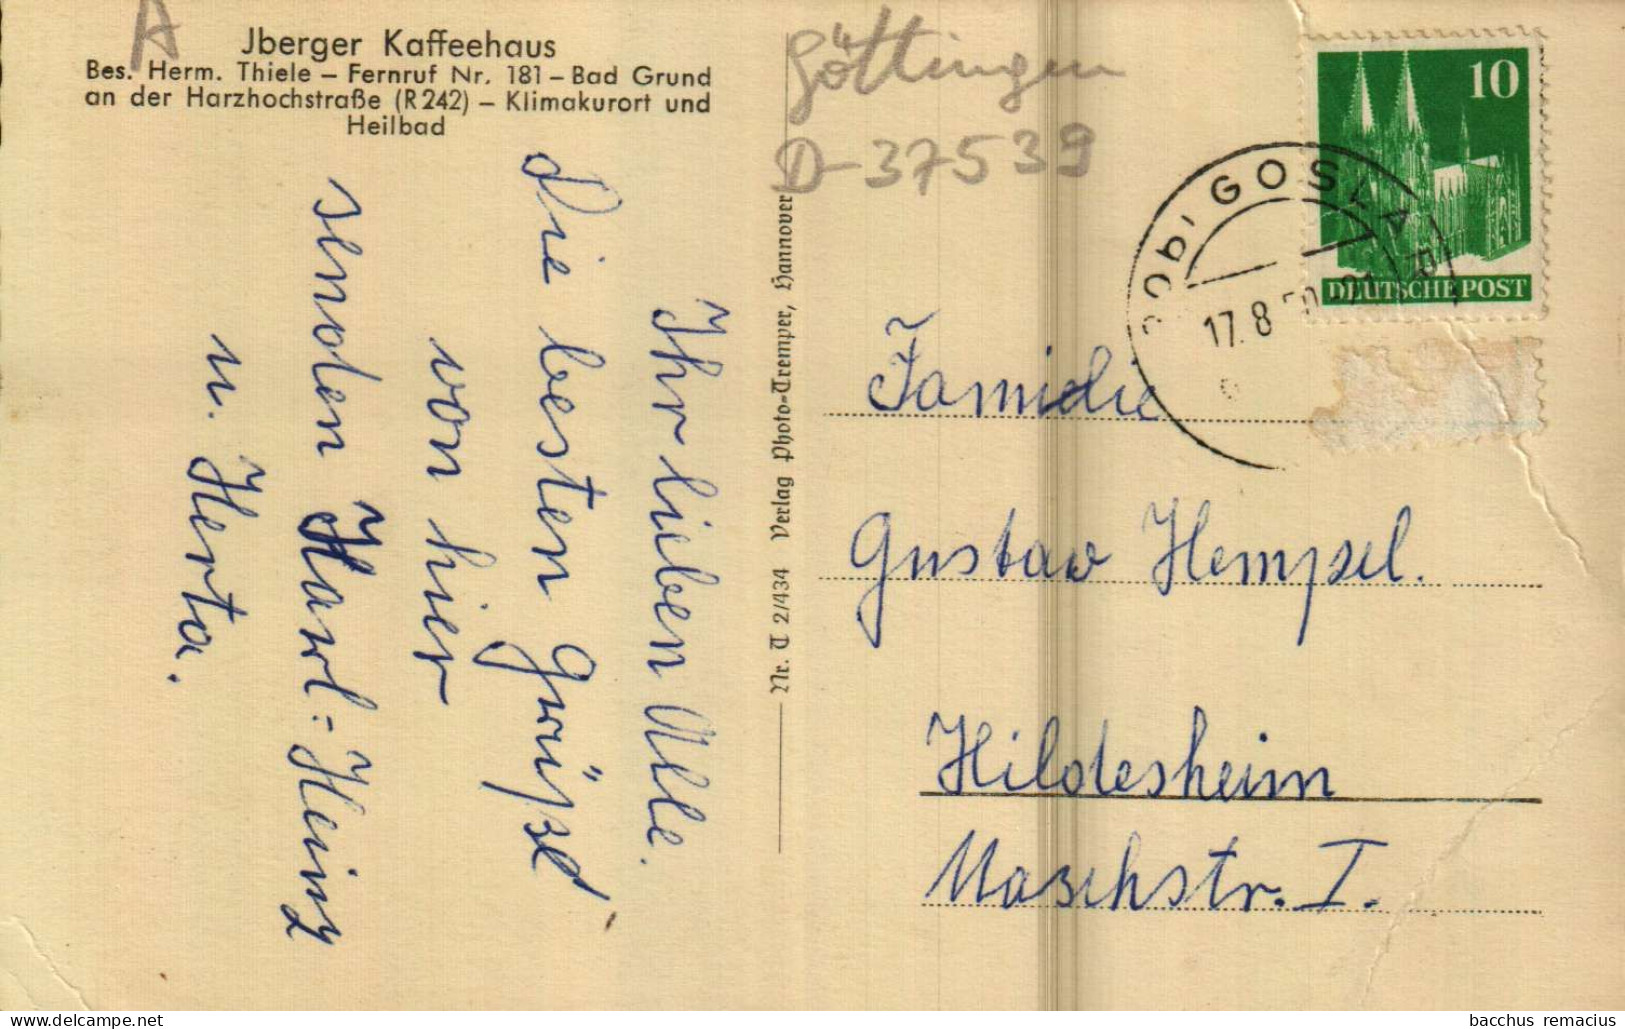 A
Jberger Kaffeehaus
Bes. Herm. Thiele – Fernruf Nr. 181 – Bad Grund
an der Harzhochstraße (R 242) – Klimakurort und
Heilbad
Göttingen
D-37539
Ihr lieben Alle.
Die besten Grüße
von hier
senden Karl-Heinz
u. Herta.
Nr. T 2/434 Verlag Photo-Tremper, Hannover
10
DEUTSCHE POST
GOSLAR
17.8.50
Familie
Gustav Hempel.
Hildesheim
Maschstr. I.
bacchus remacius